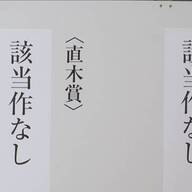 該当作なし
〈直木賞〉
該当作なし